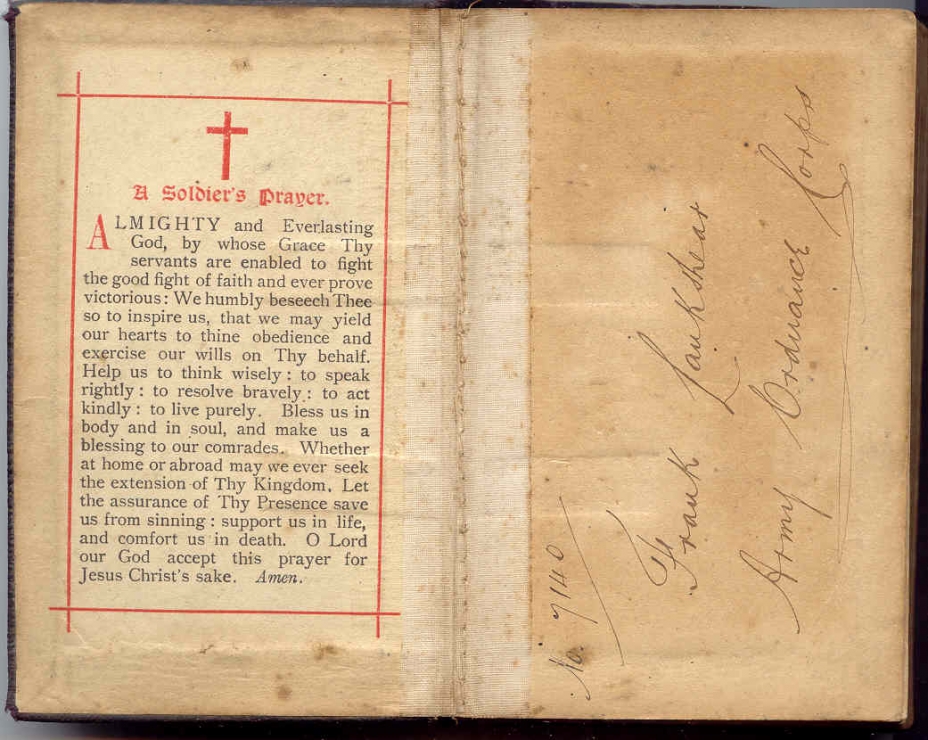 A Soldier's Prayer.
ALMIGHTY and Everlasting
God, by whose Grace Thy
servants are enabled to fight
the good fight of faith and ever prove
victorious: We humbly beseech Thee
so to inspire us, that we may yield
our hearts to thine obedience and
exercise our wills on Thy behalf.
Help us to think wisely: to speak
rightly: to resolve bravely: to act
kindly: to live purely. Bless us in
body and in soul, and make us a
blessing to our comrades. Whether
at home or abroad may we ever seek
the extension of Thy Kingdom. Let
the assurance of Thy Presence save
us from sinning: support us in life,
and comfort us in death. O Lord
our God accept this prayer for
Jesus Christ's sake. Amen.
No. 7140
Frank Lankshear
Army Ordnance Corps